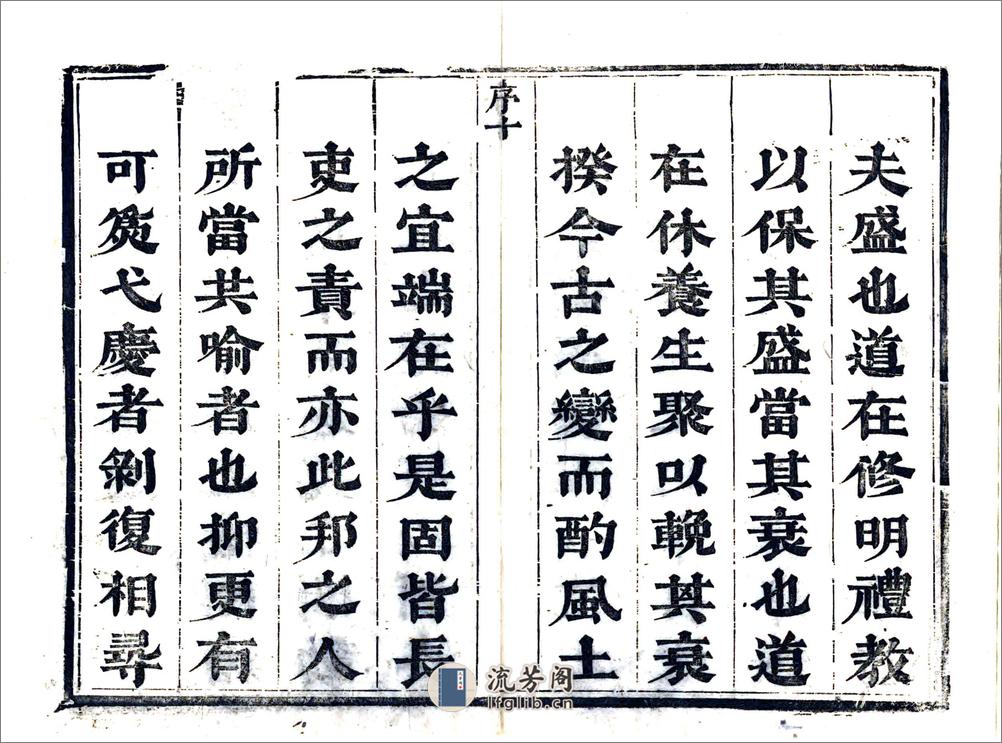 夫盛也道在修明禮教
以保其盛當其衰也道
在休養生聚以輓其衰
揆今古之變而酌風土
序十
之宜端在乎是固皆長
吏之責而亦此邦之人
所當共喻者也抑更有
可為弋慶者剝復相尋
流芳阁
lfglib.cn